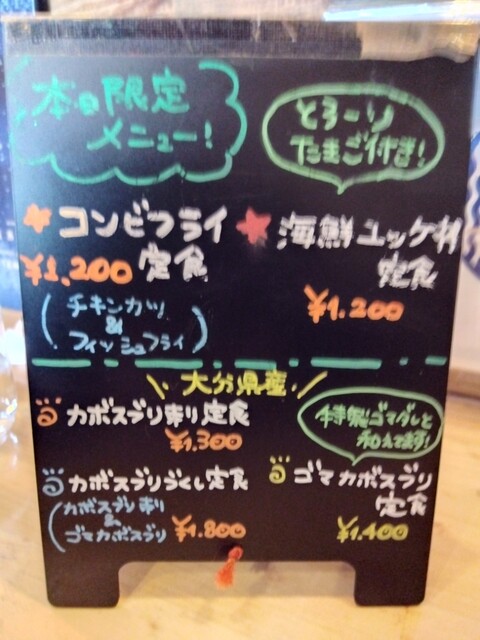 本日限定
メニュー!
とろーり
たまご付き!
コンビフライ
定食
¥1,200
(チキンカツ
&
フィッシュフライ)
海鮮ユッケ丼
定食
¥1.200
\ 大分県産 /
カボスブリ刺り定食
¥1.300
特製ゴマダレと
和えてます!
カボスブリづくし定食
(カボスブリ刺り
&
ゴマカボスブリ
¥1.800
ゴマカボスブリ
定食
¥1.400